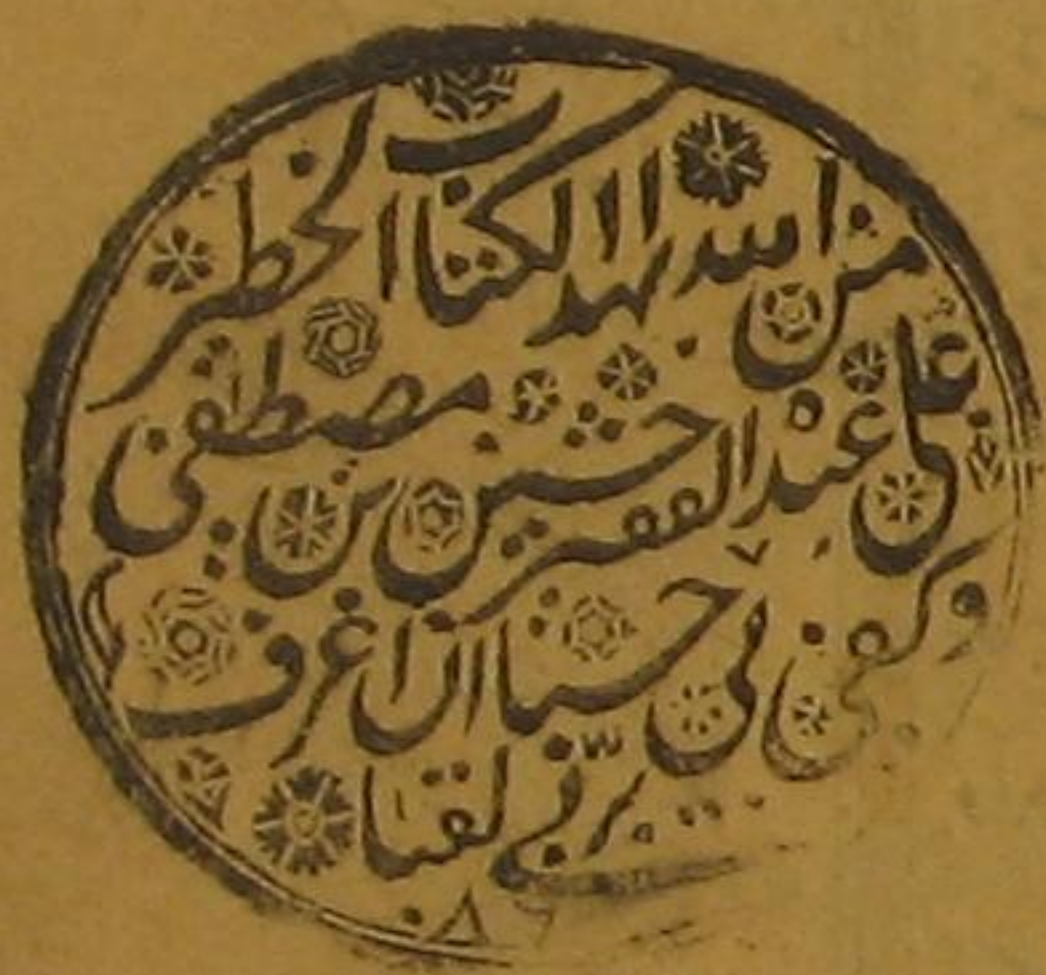 من الله بهذا الكتاب الخطير
على عبده الفقير حسين بن مصطفى
وكفى بي حسبا ان اعرف
بربي لقبا